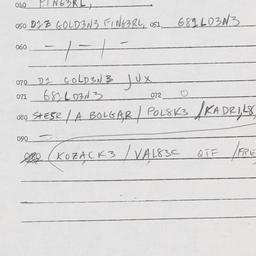 040 FINGERL,
050 D1Z GOLD3N3 FING3RL, 051 681LD3N3
060 - / - / -
070 D1 GOLD3N3 JUX
071 681LD3N3 072 0
080 / A BOLGAR / POLSK3 / KADRIL8,
090 =
(KOZACK3 / VALS3C QTF / FRE